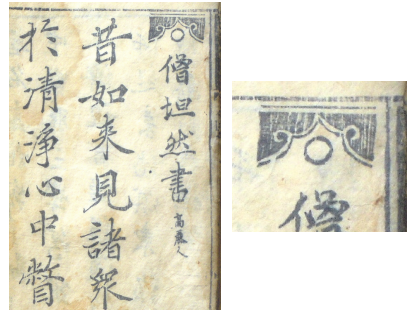 僧坦然書高麗人
昔如来見諸衆
於清淨心中瞥
僧